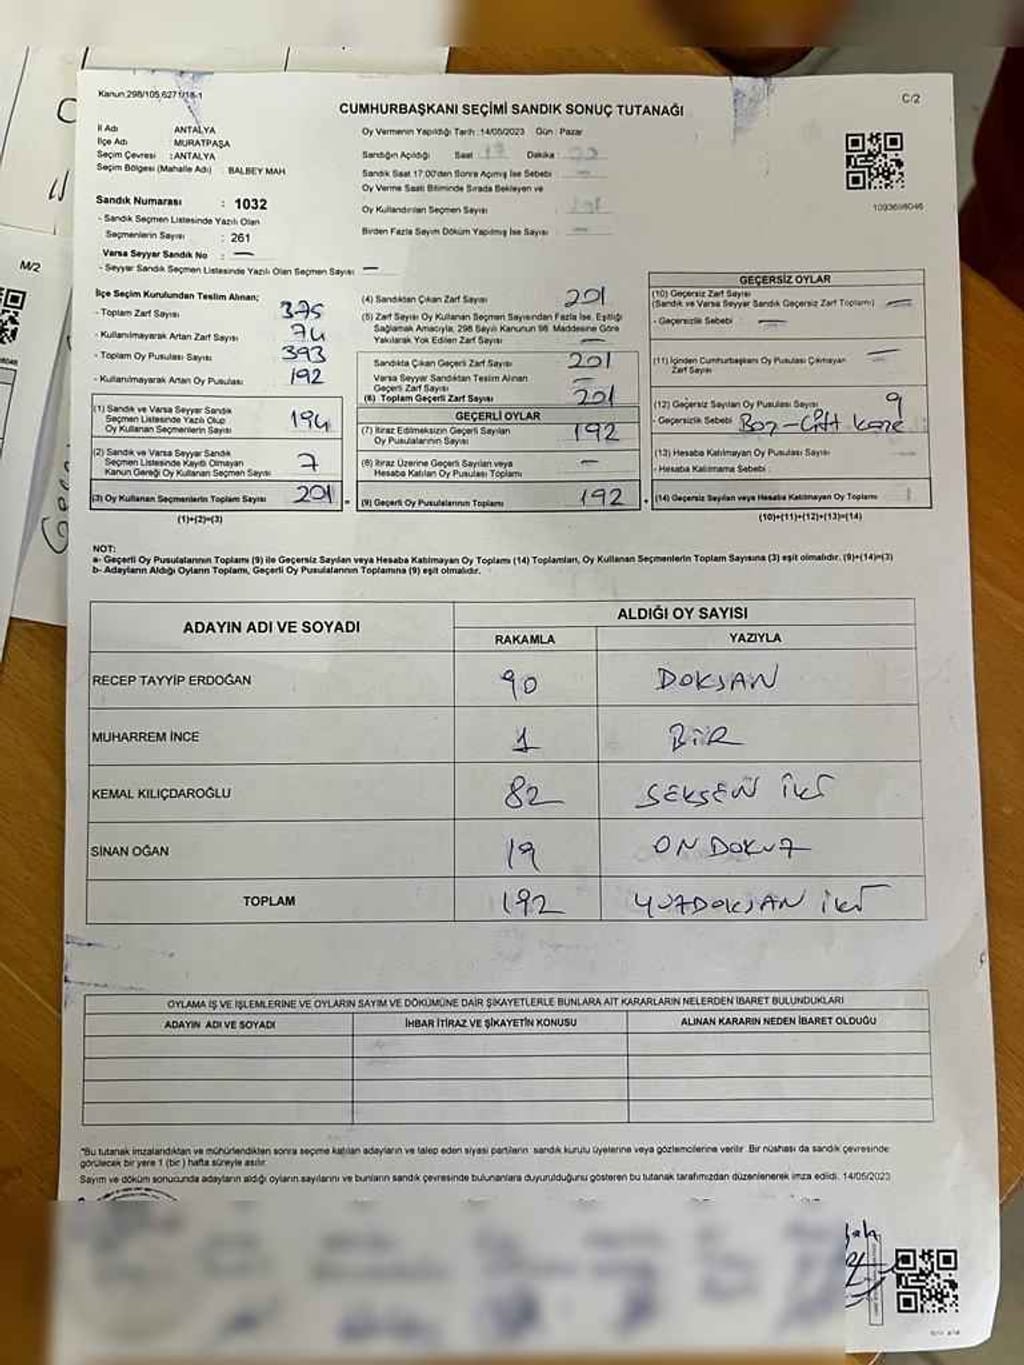 Kanun:298/105,6271/18-1
C/2
CUMHURBAŞKANI SEÇİMİ SANDIK SONUÇ TUTANAĞI
İl Adı ANTALYA
İlçe Adı MURATPAŞA
Seçim Çevresi : ANTALYA
Seçim Bölgesi (Mahalle Adı) BALBEY MAH
Sandık Numarası : 1032
- Sandık Seçmen Listesinde Yazılı Olan
Seçmenlerin Sayısı : 261
Varsa Seyyar Sandık No : —
- Seyyar Sandık Seçmen Listesinde Yazılı Olan Seçmen Sayısı —
Oy Vermenin Yapıldığı Tarih : 14/05/2023 Gün : Pazar
Sandığın Açıldığı Saat Dakika
Sandık Saat 17:00'den Sonra Açımış İse Sebebi —
Oy Verme Saati Bitiminde Sırada Bekleyen ve
Oy Kullandırılan Seçmen Sayısı
Birden Fazla Sayım Döküm Yapılmış İse Sayısı —
1093698046
M/2
İlçe Seçim Kurulundan Teslim Alınan;
- Toplam Zarf Sayısı 375
- Kullanılmayarak Artan Zarf Sayısı 74
- Toplam Oy Pusulası Sayısı 393
- Kullanılmayarak Artan Oy Pusulası 192
(1) Sandık ve Varsa Seyyar Sandık
Seçmen Listesinde Yazılı Olup
Oy Kullanan Seçmenlerin Sayısı 194
(2) Sandık ve Varsa Seyyar Sandık
Seçmen Listesinde Kayıtlı Olmayan
Kanun Gereği Oy Kullanan Seçmen Sayısı 7
(3) Oy Kullanan Seçmenlerin Toplam Sayısı 201
(1)+(2)=(3)
(4) Sandıktan Çıkan Zarf Sayısı 201
(5) Zarf Sayısı Oy Kullanan Seçmen Sayısından Fazla İse, Eşitliği
Sağlamak Amacıyla, 298 Sayılı Kanunun 98. Maddesine Göre
Yakılarak Yok Edilen Zarf Sayısı —
Sandıkta Çıkan Geçerli Zarf Sayısı 201
Varsa Seyyar Sandıktan Teslim Alınan
Geçerli Zarf Sayısı —
(6) Toplam Geçerli Zarf Sayısı 201
GEÇERLİ OYLAR
(7) İtiraz Edilmeksizin Geçerli Sayılan
Oy Pusulalarının Sayısı 192
(8) İtiraz Üzerine Geçerli Sayılan veya
Hesaba Katılan Oy Pusulası Toplamı —
= (9) Geçerli Oy Pusulalarının Toplamı 192
GEÇERSİZ OYLAR
(10) Geçersiz Zarf Sayısı
(Sandık ve Varsa Seyyar Sandık Geçersiz Zarf Toplamı) —
- Geçersizlik Sebebi : —
(11) İçinden Cumhurbaşkanı Oy Pusulası Çıkmayan
Zarf Sayısı —
(12) Geçersiz Sayılan Oy Pusulası Sayısı 9
- Geçersizlik Sebebi : Boş-Çift
(13) Hesaba Katılmayan Oy Pusulası Sayısı —
- Hesaba Katılmama Sebebi :
+ (14) Geçersiz Sayılan veya Hesaba Katılmayan Oy Toplamı
(10)+(11)+(12)+(13)=(14)
NOT:
a- Geçerli Oy Pusulalarının Toplamı (9) ile Geçersiz Sayılan veya Hesaba Katılmayan Oy Toplamı (14) Toplamları, Oy Kullanan Seçmenlerin Toplam Sayısına (3) eşit olmalıdır. (9)+(14)=(3)
b- Adayların Aldığı Oyların Toplamı, Geçerli Oy Pusulalarının Toplamına (9) eşit olmalıdır.
ADAYIN ADI VE SOYADI
ALDIĞI OY SAYISI
RAKAMLA YAZIYLA
RECEP TAYYİP ERDOĞAN 90 DOKSAN
MUHARREM İNCE 1 BİR
KEMAL KILIÇDAROĞLU 82 SEKSEN İKİ
SİNAN OĞAN 19 ON DOKUZ
TOPLAM 192 YÜZDOKSAN İKİ
OYLAMA İŞ VE İŞLEMLERİNE VE OYLARIN SAYIM VE DÖKÜMÜNE DAİR ŞİKAYETLERLE BUNLARA AİT KARARLARIN NELERDEN İBARET BULUNDUKLARI
ADAYIN ADI VE SOYADI İHBAR İTİRAZ VE ŞİKAYETİN KONUSU ALINAN KARARIN NEDEN İBARET OLDUĞU
"Bu tutanak imzalandıktan ve mühürlendikten sonra seçime katılan adayların ve talep eden siyasi partilerin sandık kurulu üyelerine veya gözlemcilerine verilir. Bir nüshası da sandık çevresinde
görülecek bir yere 1 (bir) hafta süreyle asılır.
Sayım ve döküm sonucunda adayların aldığı oyların sayılarını ve bunların sandık çevresinde bulunanlara duyurulduğunu gösteren bu tutanak tarafımızdan düzenlenerek imza edildi. 14/05/2023